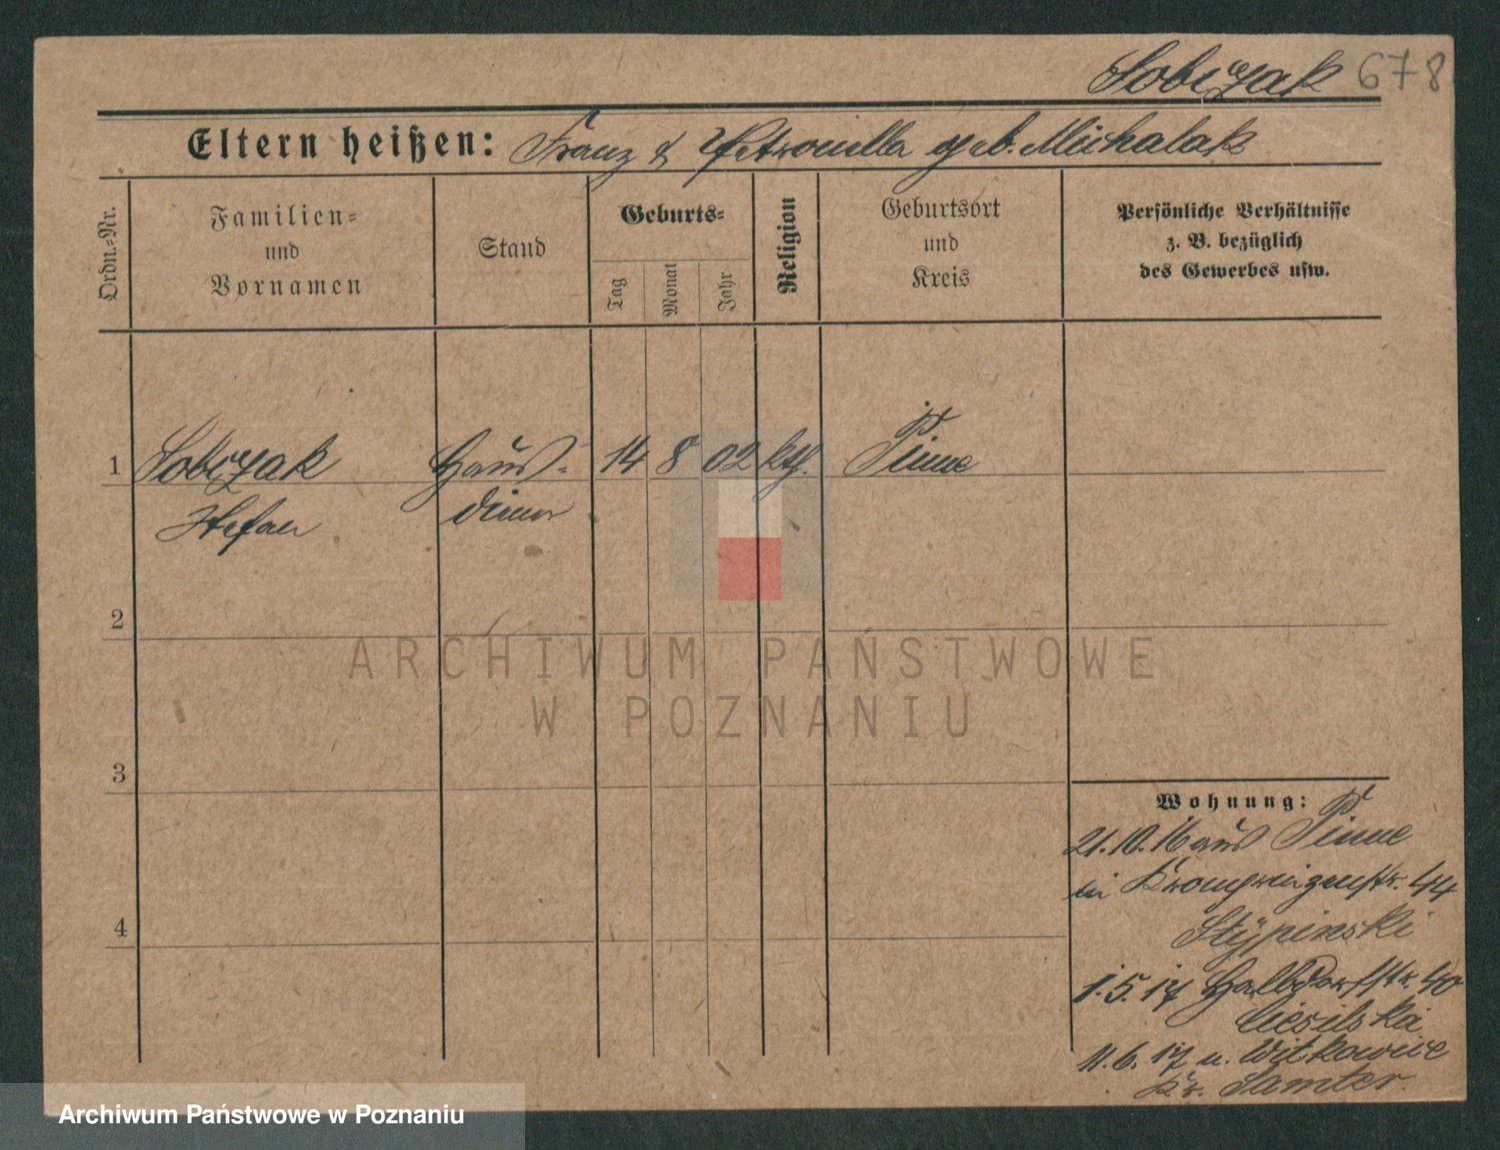 Sobczak 678
Eltern heißen: Franz & Petronella geb. Michalak
Ordn.=Nr.
Familien=
und
Vornamen
Stand
Geburts=
Tag
Monat
Jahr
Religion
Geburtsort
und
Kreis
Persönliche Verhältnisse
z. B. bezüglich
des Gewerbes usw.
1 Sobczak Haus= 14 8 02 kth. Pinne
Stefan diener
2
ARCHIWUM PAŃSTWOWE
W POZNANIU
3
Wohnung:
21.10.16 aus Pinne
in Kronprinzenstr. 44
Stypinski
4
1.5.17 Halbdorfstr. 40
11.6.17 n. Witkowice
Kr. Samter.
Archiwum Państwowe w Poznaniu